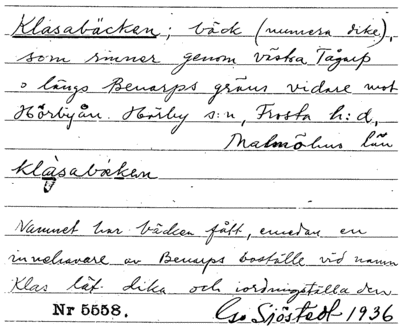 Klasabäcken; bäck (numera dike),
som rinner genom västra Tågarp
o längs Benarps gräns vidare mot
Hörbyån. Hörby s:n, Frosta h:d,
Malmöhus län
klàsabäken
Namnet har bäcken fått, emedan en
innehavare av Benarps boställe vid namn
Klas lät dika och iordningställa den
Nr 5558. G. Sjöstedt 1936